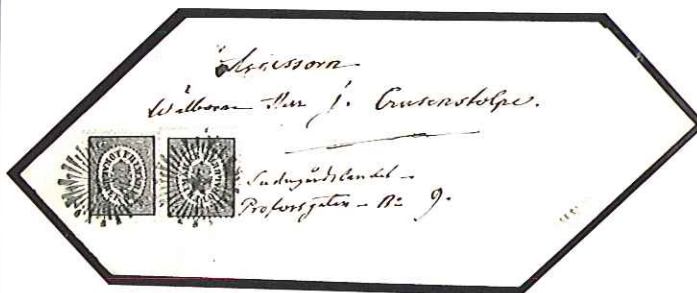 Assessorn
Wälborne Herr J. Crusenstolpe.
Ladugårdslandet –
Profossgatan – No 9.